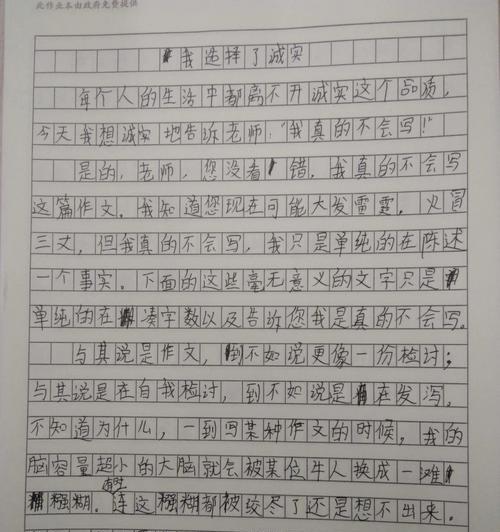 此作业本由政府免费提供
我选择了诚实
每个人的生活中都离不开诚实这个品质,
今天我想诚实地告诉老师:“我真的不会写!”
是的,老师,您没看错,我真的不会写
这篇作文。我知道您现在可能大发雷霆,火冒
三丈,但我真的不会写,我只是单纯的在陈述
一个事实。下面的这些毫无意义的文字只是
单纯的在凑字数以及告诉您我是真的不会写。
与其说是作文,倒不如说更像一份检讨;
与其说是在自我检讨,到不如说是在发泻。
不知道为什么,一到写某种作文的时候,我的
脑容量超小的大脑就会被某位牛人换成一滩
糨糊。连这糨糊都被绞尽了还是想不出来。